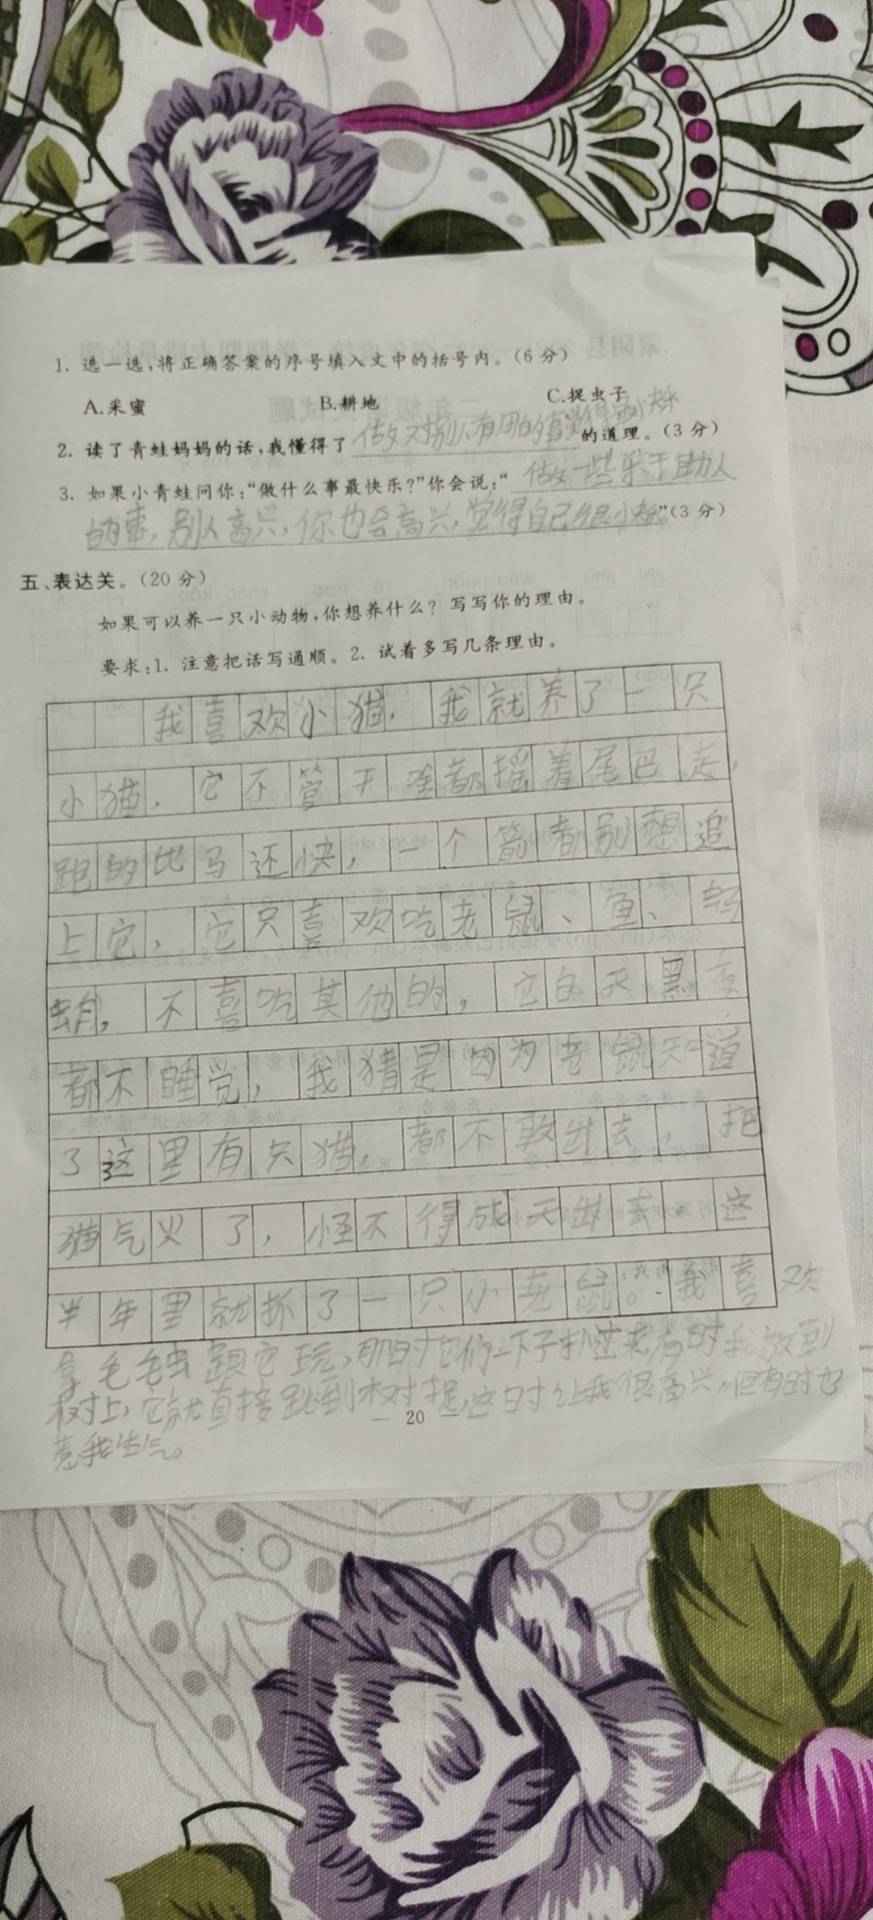 1. 选一选,将正确答案的序号填入文中的括号内。(6分)
A.采蜜 B.耕地 C.捉虫子
2. 读了青蛙妈妈的话,我懂得了 做对别人有用的事 的道理。(3分)
3. 如果小青蛙问你:“做什么事最快乐?”你会说:“ 做一些乐于助人
的事,别人高兴,你也会高兴,觉得自己很 ”(3分)
五、表达关。(20分)
如果可以养一只小动物,你想养什么? 写写你的理由。
要求:1. 注意把话写通顺。2. 试着多写几条理由。
我喜欢小猫,我就养了一只
小猫,它不管干啥都摇着尾巴走,
跑的比马还快,一个箭都别想追
上它,它只喜欢吃老鼠、鱼、
不喜吃其他的,它白天黑夜
都不睡觉,我猜是因为老鼠知道
了这里有只猫,都不敢出去,把
猫气火了,怪不得成天出去,这
半年里就抓了一只小老鼠。我喜欢
拿毛毛虫跟它玩,那时它们一下子扑过来有时我放到
树上,它就直接跳到树上捉,这时让我很高兴,但有时也
惹我生气。
— 20 —